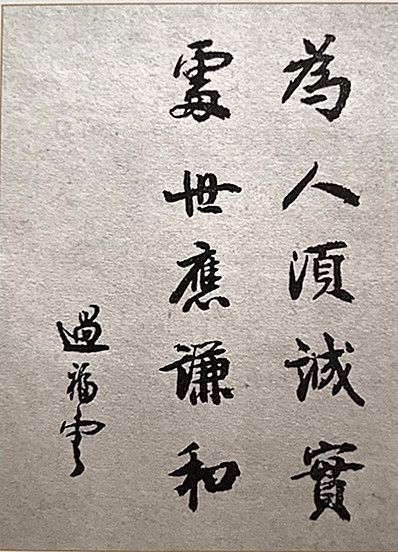 為人須誠實
處世應謙和
過福雲